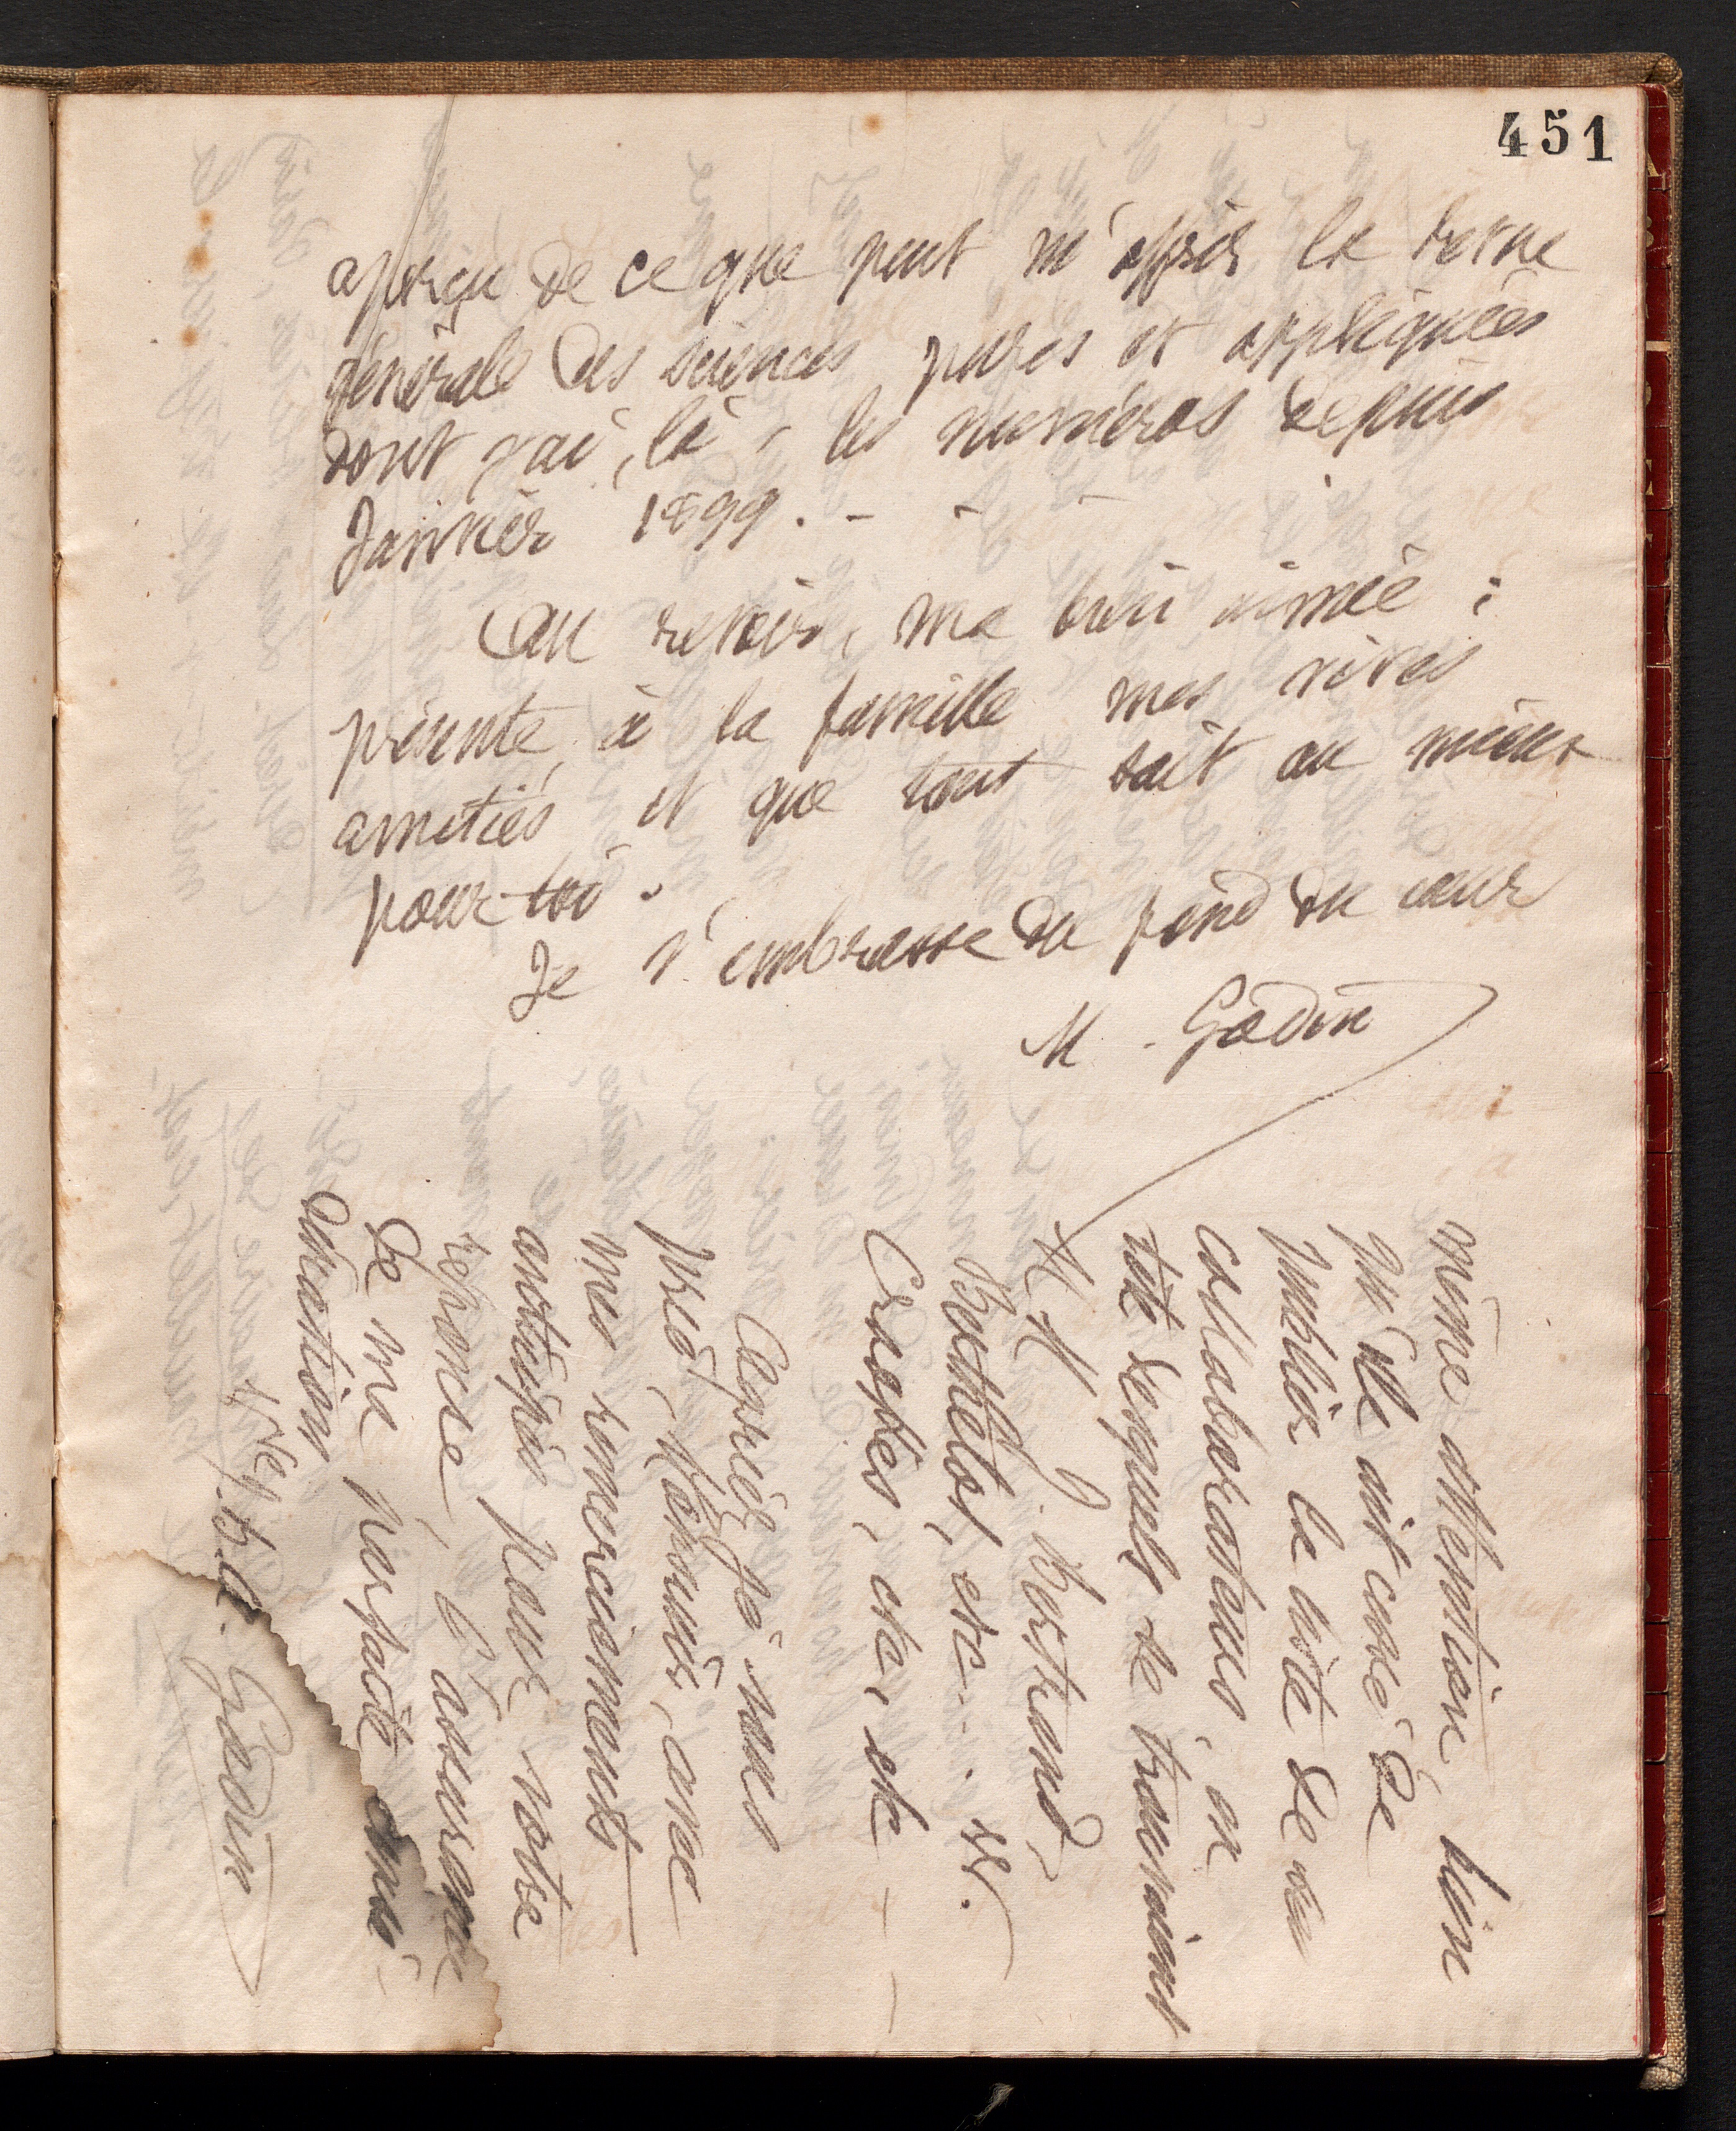 451
aperçu de ce que peut m'offrir la revue
générale des sciences pures et appliquées
dont j'ai, là, les numéros depuis
Janvier 1899. -
Au revoir, ma bien aimée ;
présente à la famille mes vives
amitiés et que tout soit au mieux
pour toi.
Je t'embrasse du fond du cœur
M. Godin
même attention, bien
qu'elle ait cessé de
publier la liste de ses
collaborateurs, en
tête desquels se trouvaient
MM. J. Bertrand,
Berthelot, etc... W.
Crookes, etc, etc
Agréez je vous
prie, Monsieur, avec
mes remerciements
anticipés pour votre
réponse, l'assurance
de ma parfaite consi-
dération
Vve. B.A. Godin